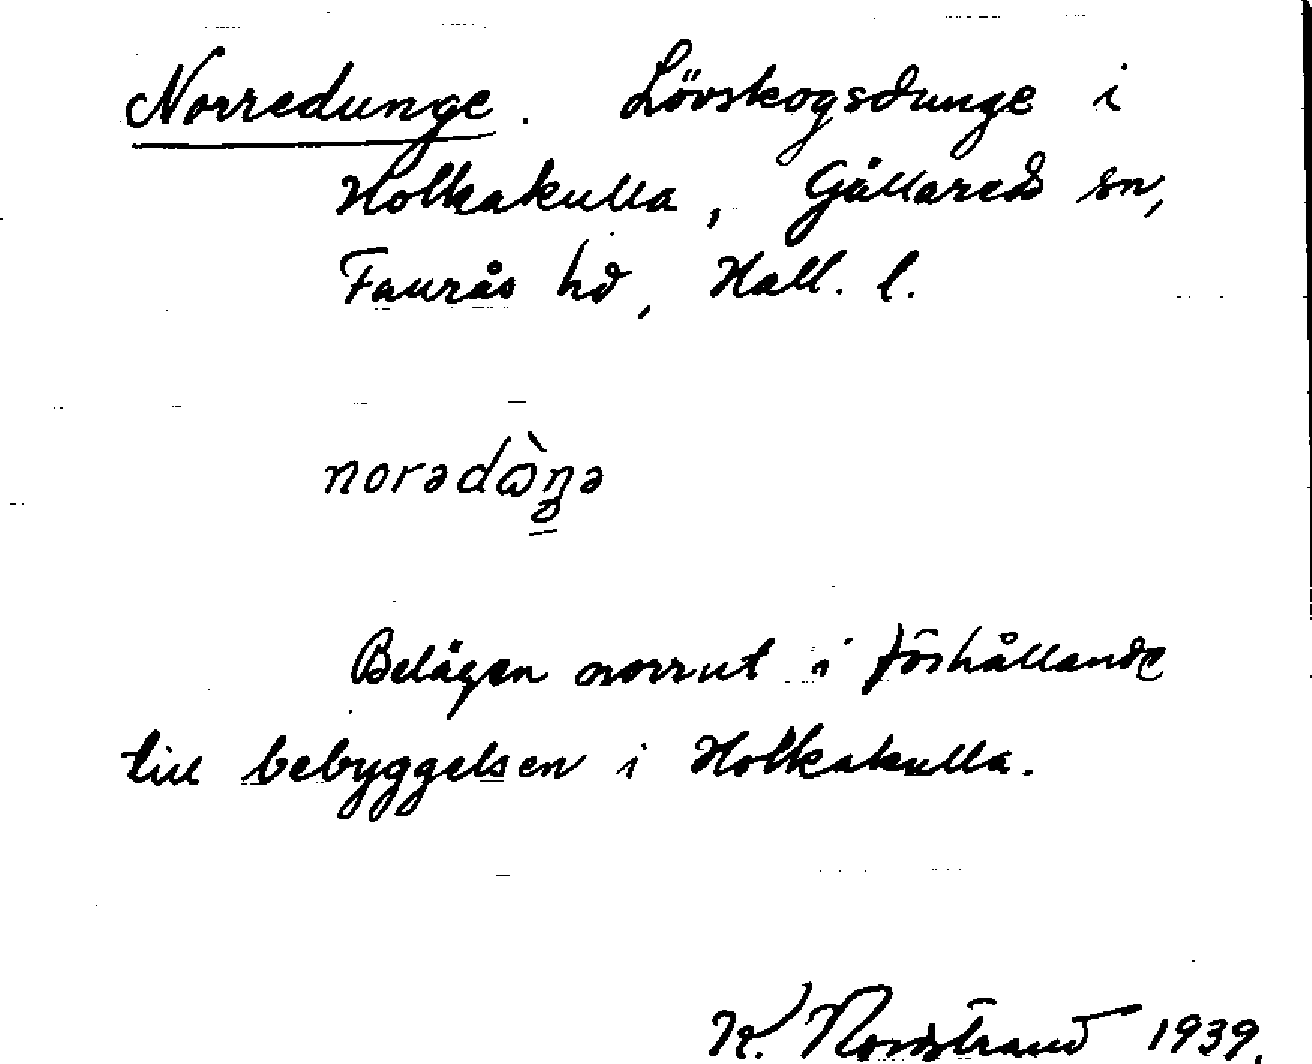 Norredunge. Lövskogsdunge i
Holkakulla, Gällared sn,
Faurås hd, Hall. l.
norədɷ̀ŋə
Belägen norrut i förhållande
till bebyggelsen i Holkakulla.
K. Nordstrand 1939.